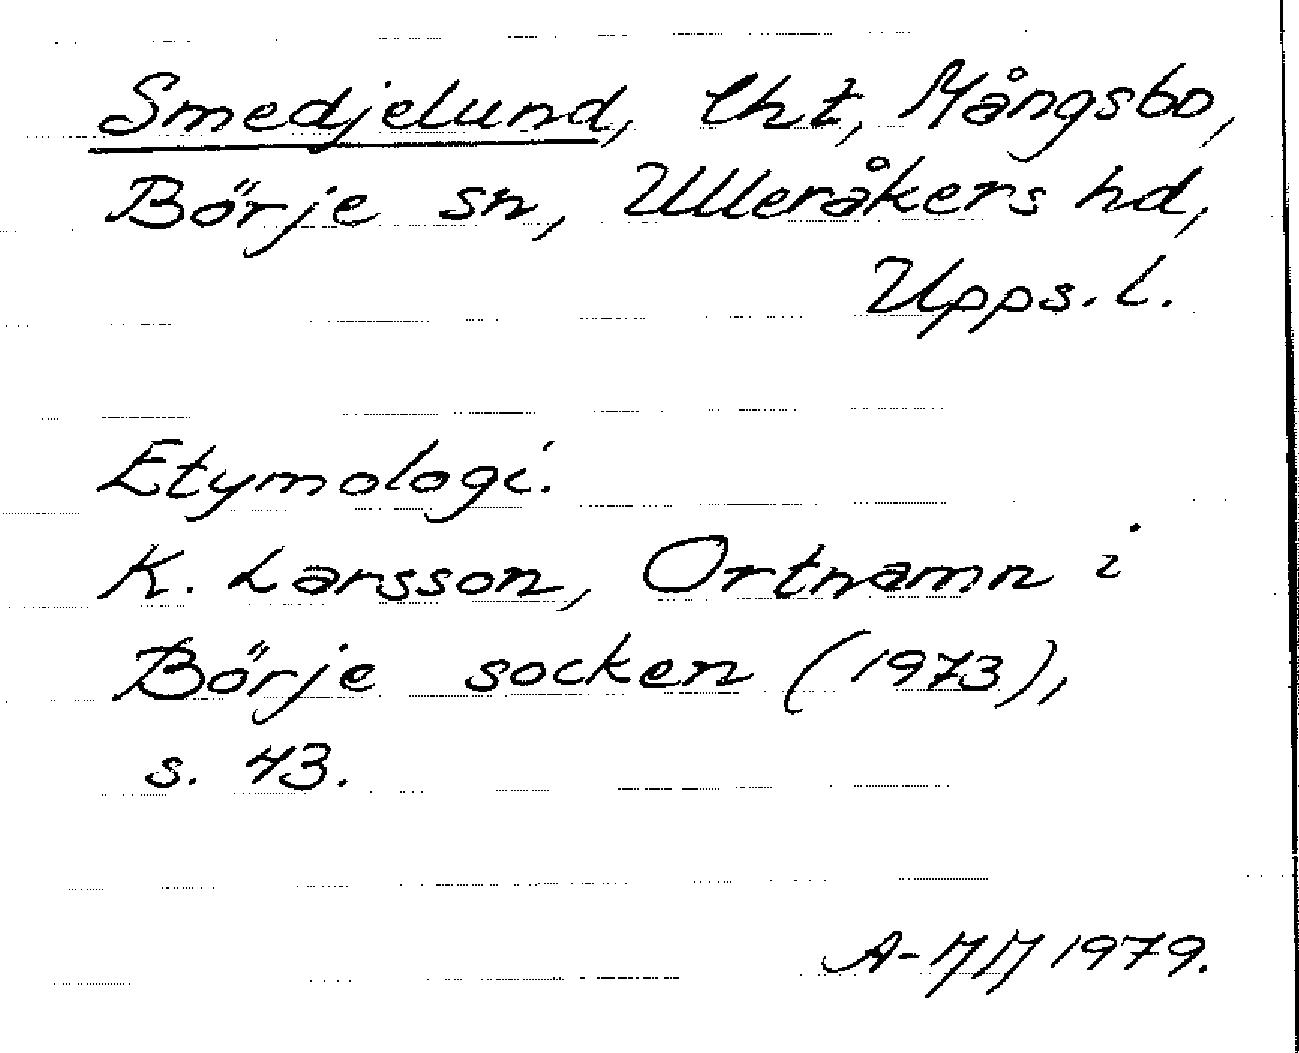 Smedjelund, lht, Mångsbo,
Börje sn, Ulleråkers hd,
Upps. l.
Etymologi.
K. Larsson, Ortnamn i
Börje socken (1973),
s. 43.
1979.